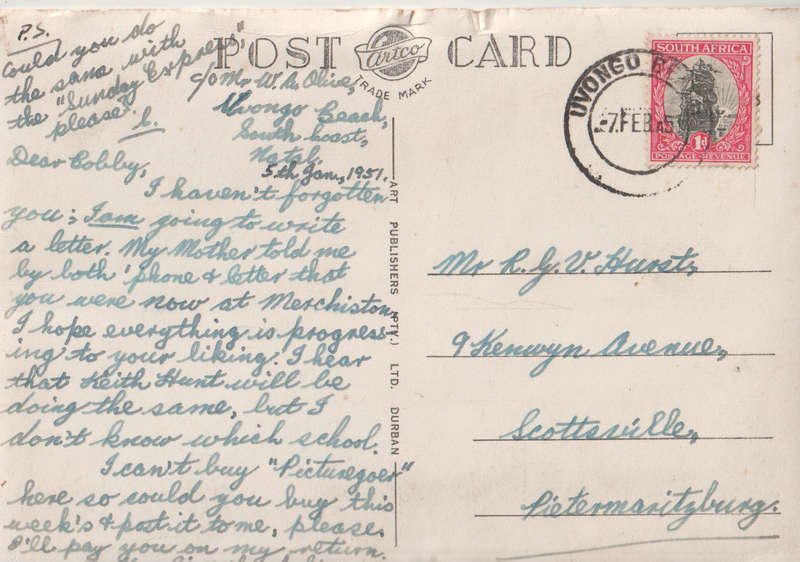 P.S.
Could you do
the same with
the "Sunday Express",
please?
L.
POST CARD
Artco
TRADE MARK
c/o Mr W. A. Olive,
Uvongo Beach,
South Coast,
Natal.
5th Jan, 1951.
Dear Cobby,
I haven't forgotten
you; I am going to write
a letter. My Mother told me
by both 'phone & letter that
you were now at Merchiston.
I hope everything is progress-
ing to your liking. I hear
that Keith Hunt will be
doing the same, but I
don't know which school.
I can't buy "Picturegoer"
here so could you buy this
week's & post it to me, please.
I'll pay you on my return.
ART PUBLISHERS (PTY.) LTD. DURBAN
UVONGO
-7.FEB.5
SOUTH AFRICA
1D
POSTAGE-REVENUE
Mr R. G. V. Hurst,
9 Kenwyn Avenue,
Scottsville,
Pietermaritzburg.